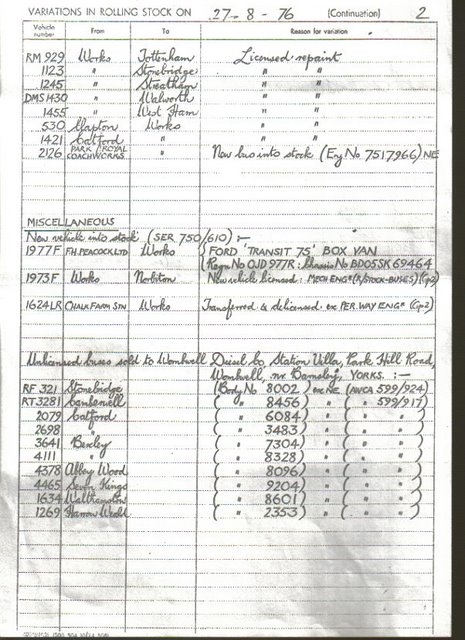 VARIATIONS IN ROLLING STOCK ON 27-8-76 (Continuation) 2
Vehicle number From To Reason for variation
RM 929 Works Tottenham Licensed repaint
1123 " Stonebridge " "
1245 " Streatham " "
DMS 1430 " Walworth " "
1455 " West Ham " "
530 Clapton Works " "
1421 Catford " " "
2126 PARK ROYAL COACHWORKS " New bus into stock (Eng No 7517966) NE
MISCELLANEOUS
New vehicle into stock (SER 750/610) :-
1977F F.H. PEACOCK LTD Works FORD 'TRANSIT 75' BOX VAN
Regn No OJD 977R : Chassis No BD05SK 69464
1973F Works Norbiton New vehicle licensed: MECH ENGR (R/STOCK-BUSES) (Gp2)
1624LR CHALK FARM STN Works Transferred & delicensed ex PER. WAY ENGR (Gp2)
Unlicensed buses sold to Wombwell Diesel Co, Station Villa, Park Hill Road,
Wombwell, nr Barnsley, YORKS. :-
RF 321 Stonebridge (Body No 8002) ex NE (AVCA 599/924)
RT 3281 Camberwell ( " 8456) " ( " 599/917)
2079 Catford ( " 6084) " ( " " )
2698 " ( " 3483) " ( " " )
3641 Bexley ( " 7304) " ( " " )
4111 " ( " 8328) " ( " " )
4378 Abbey Wood ( " 8096) " ( " " )
4465 Seven Kings ( " 9204) " ( " " )
1634 Walthamstow ( " 8601) " ( " " )
1269 Harrow Weald ( " 2353) " ( " " )